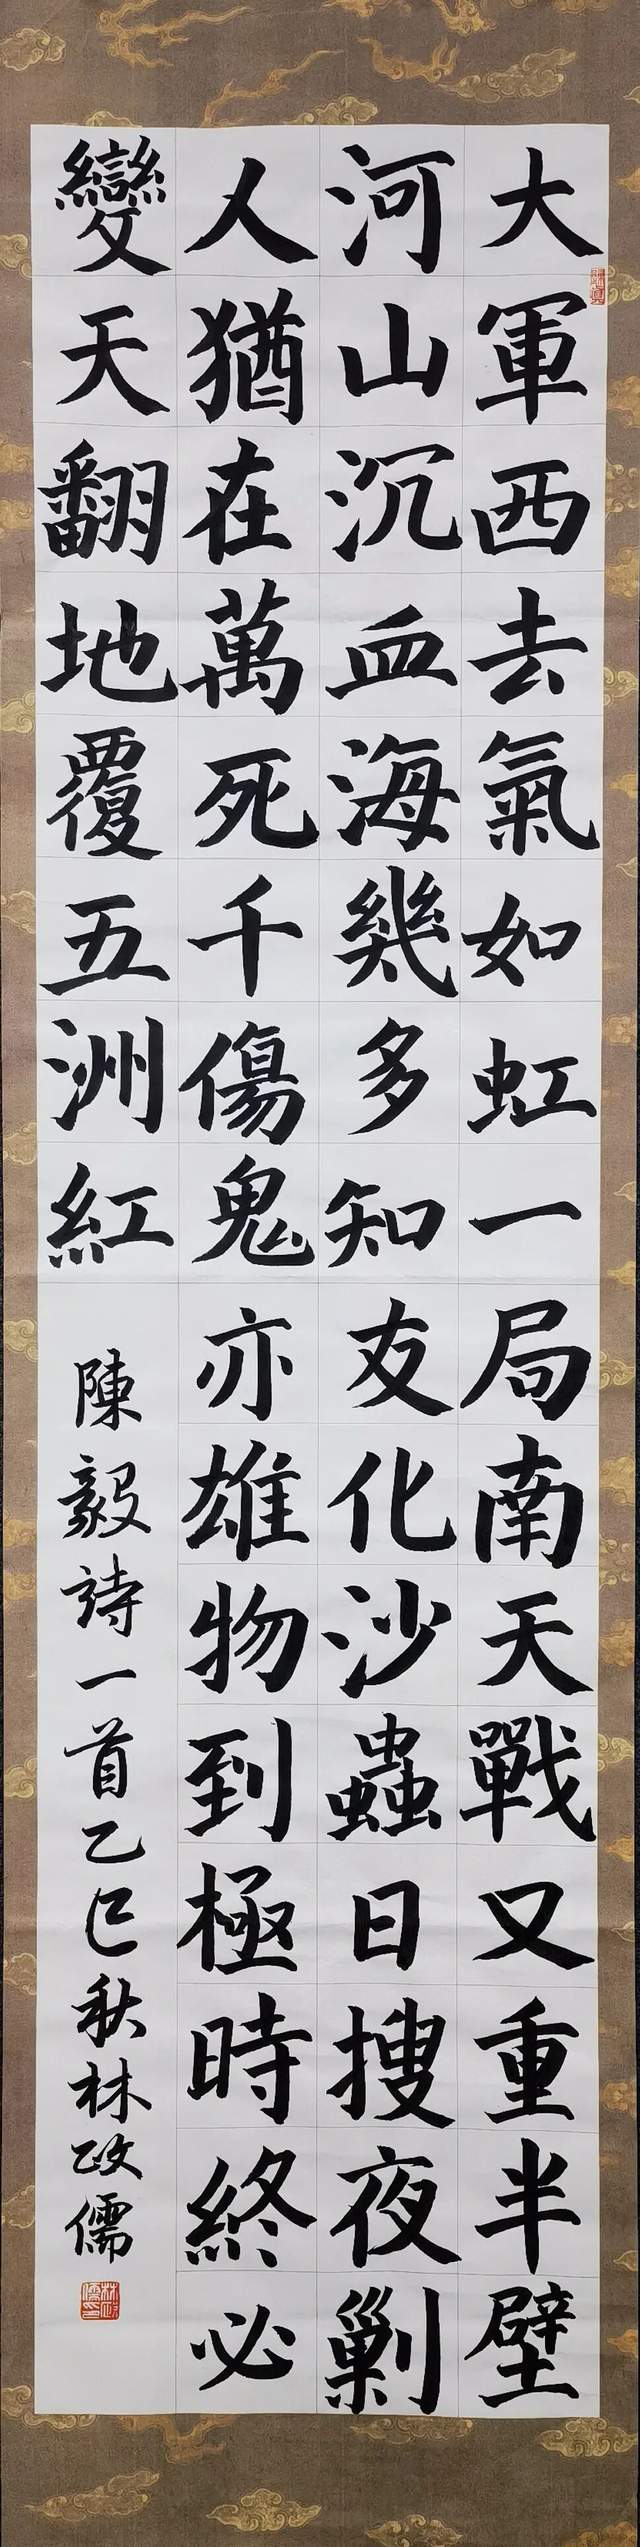 大軍西去氣如虹一局南天戰又重半壁
河山沉血海幾多知友化沙蟲日搜夜剿
人猶在萬死千傷鬼亦雄物到極時終必
變天翻地覆五洲紅
陳毅詩一首乙巳秋林政儒